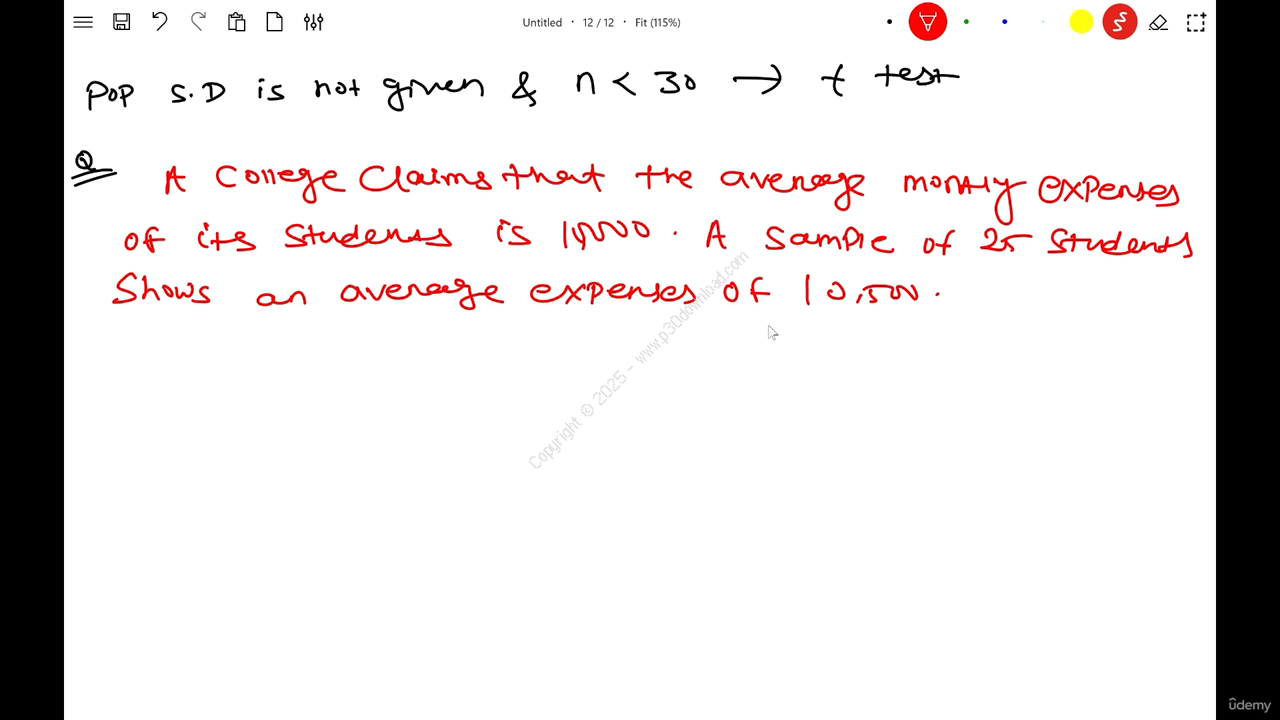 Untitled • 12 / 12 • Fit (115%)
Pop S.D is not given & n < 30 → t test
Q A College Claims that the average montly expenses
of its Students is 10000. A Sample of 25 Students
Shows an average expenses of 10,500.
Copyright © 2025 - www.p30download.com
ûdemy